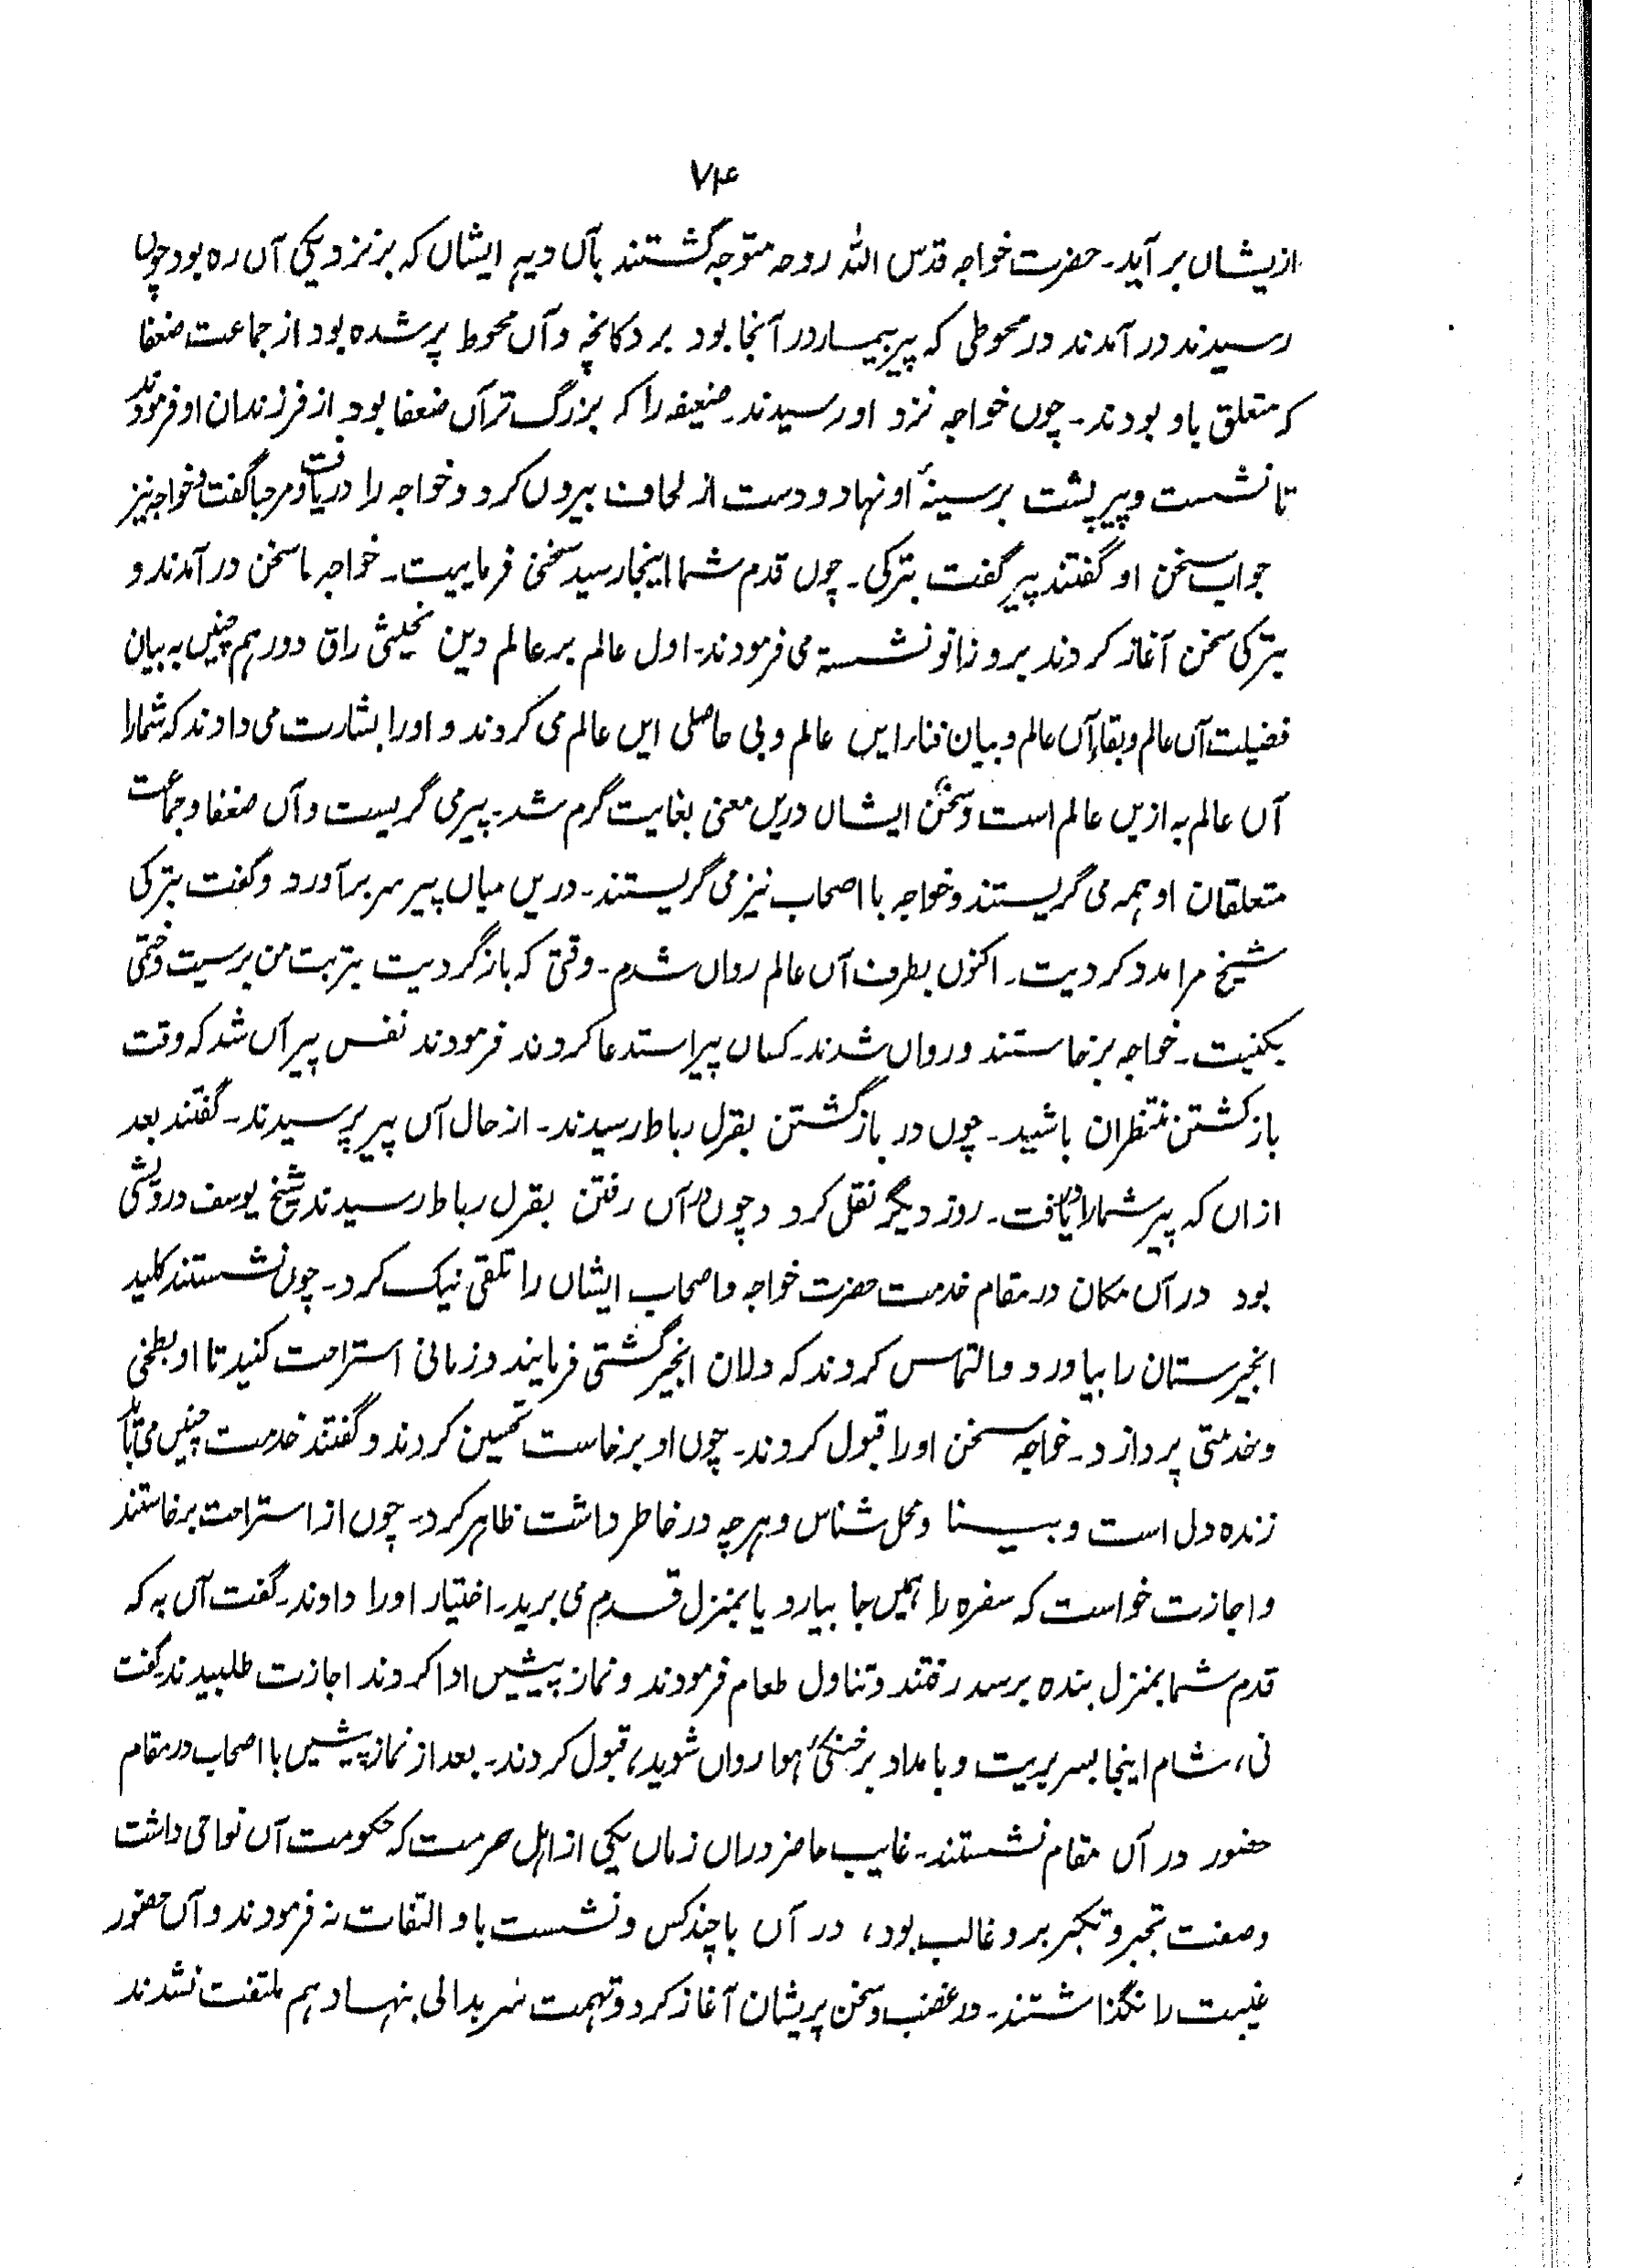 ۷۴
ازیشاں برآید۔ حضرت خواجہ قدس اللہ روحہ متوجہ گشتند بآں دیہہ ایشاں کہ برنزدیکی آں رہ بود چوں
رسیدند در آمدند در محوطی کہ پیر بیمار در آنجا بود بر دکانچہ و آں محوط پر شدہ بود از جماعت ضعفا
کہ متعلق باو بودند۔ چوں خواجہ نزد او رسیدند۔ ضعیفہ را کہ بزرگ تر آں ضعفا بود از فرزندان او فرمودند
تا نشست و پیر پشت بر سینۂ او نہاد و دست از لحاف بیروں کرد و خواجہ را دریافت و مرحبا گفت و خواجہ نیز
جواب سخن او گفتند پیر گفت بترکی۔ چوں قدم شما اینجا رسید سخنی فرمایبت۔ خواجہ ما سخن در آمدند و
بترکی سخن آغاز کردند بر و زانو نشستہ می فرمودند۔ اول عالم بر عالم دین راق دور ہم چنیں بہ بیان
فضیلت آں عالم و بقاء آں عالم و بیان فناء ایں عالم و بی حاصلی ایں عالم می کردند و اورا بشارت می دادند کہ شمارا
آں عالم بہ ازیں عالم است و سخن ایشاں دریں معنی بغایت گرم شد۔ پیر می گریست و آں ضعفا و جماعت
متعلقان او ہمہ می گریستند و خواجہ با اصحاب نیز می گریستند۔ دریں میاں پیر سر برآورد و گفت بترکی
شیخ مرا مدد کردیت۔ اکنوں بطرف آں عالم رواں شدم۔ وقتی کہ بازگردیت بتربت من برسیت و ختمی
بکنیت۔ خواجہ برخاستند و رواں شدند۔ کساں پیر استدعا کردند فرمودند نفس پیر آں شد کہ وقت
بازگشتن منتظران باشید۔ چوں در بازگشتن بقرل رباط رسیدند۔ از حال آں پیر پرسیدند۔ گفتند بعد
ازاں کہ پیر شمارا دریافت۔ روز دیگر نقل کرد و چوں در آں رفتن بقرل رباط رسیدند شیخ یوسف درویشی
بود در آں مکان در مقام خدمت حضرت خواجہ و اصحاب ایشاں را تلقی نیک کرد۔ چوں نشستند کلید
انجیرستان را بیاورد و التماس کردند کہ دلان انجیر گشتی فرمایند و زمانی استراحت کنید تا او بطبخی
و خدمتی پردازد۔ خواجہ سخن اورا قبول کردند۔ چوں او برخاست تحسین کردند و گفتند خدمت چنیں می باید
زندہ دل است و بینا و محل شناس و ہرچہ در خاطر داشت ظاہر کرد۔ چوں از استراحت برخاستند
و اجازت خواست کہ سفرہ را ہمیں جا بیارد یا بمنزل قدم می برید۔ اختیار اورا دادند۔ گفت آں بہ کہ
قدم شما بمنزل بندہ برسد رفتند و تناول طعام فرمودند و نماز پیشیں ادا کردند اجازت طلبیدند گفت
نی، شام اینجا بسر بریت و بامداد بر خنکیٔ ہوا رواں شوید، قبول کردند۔ بعد از نماز پیشیں با اصحاب در مقام
حضور در آں مقام نشستند۔ غایب حاضر دراں زماں یکی از اہل حرمت کہ حکومت آں نواحی داشت
و صفت تجبر و تکبر برو غالب بود، در آں با چند کس و نشست باو التفات نہ فرمودند و آں حضور
غیبت را نگذاشتند۔ در غضب و سخن پریشان آغاز کرد و تہمت سربدالی بنہاد ہم ملتفت نشدند